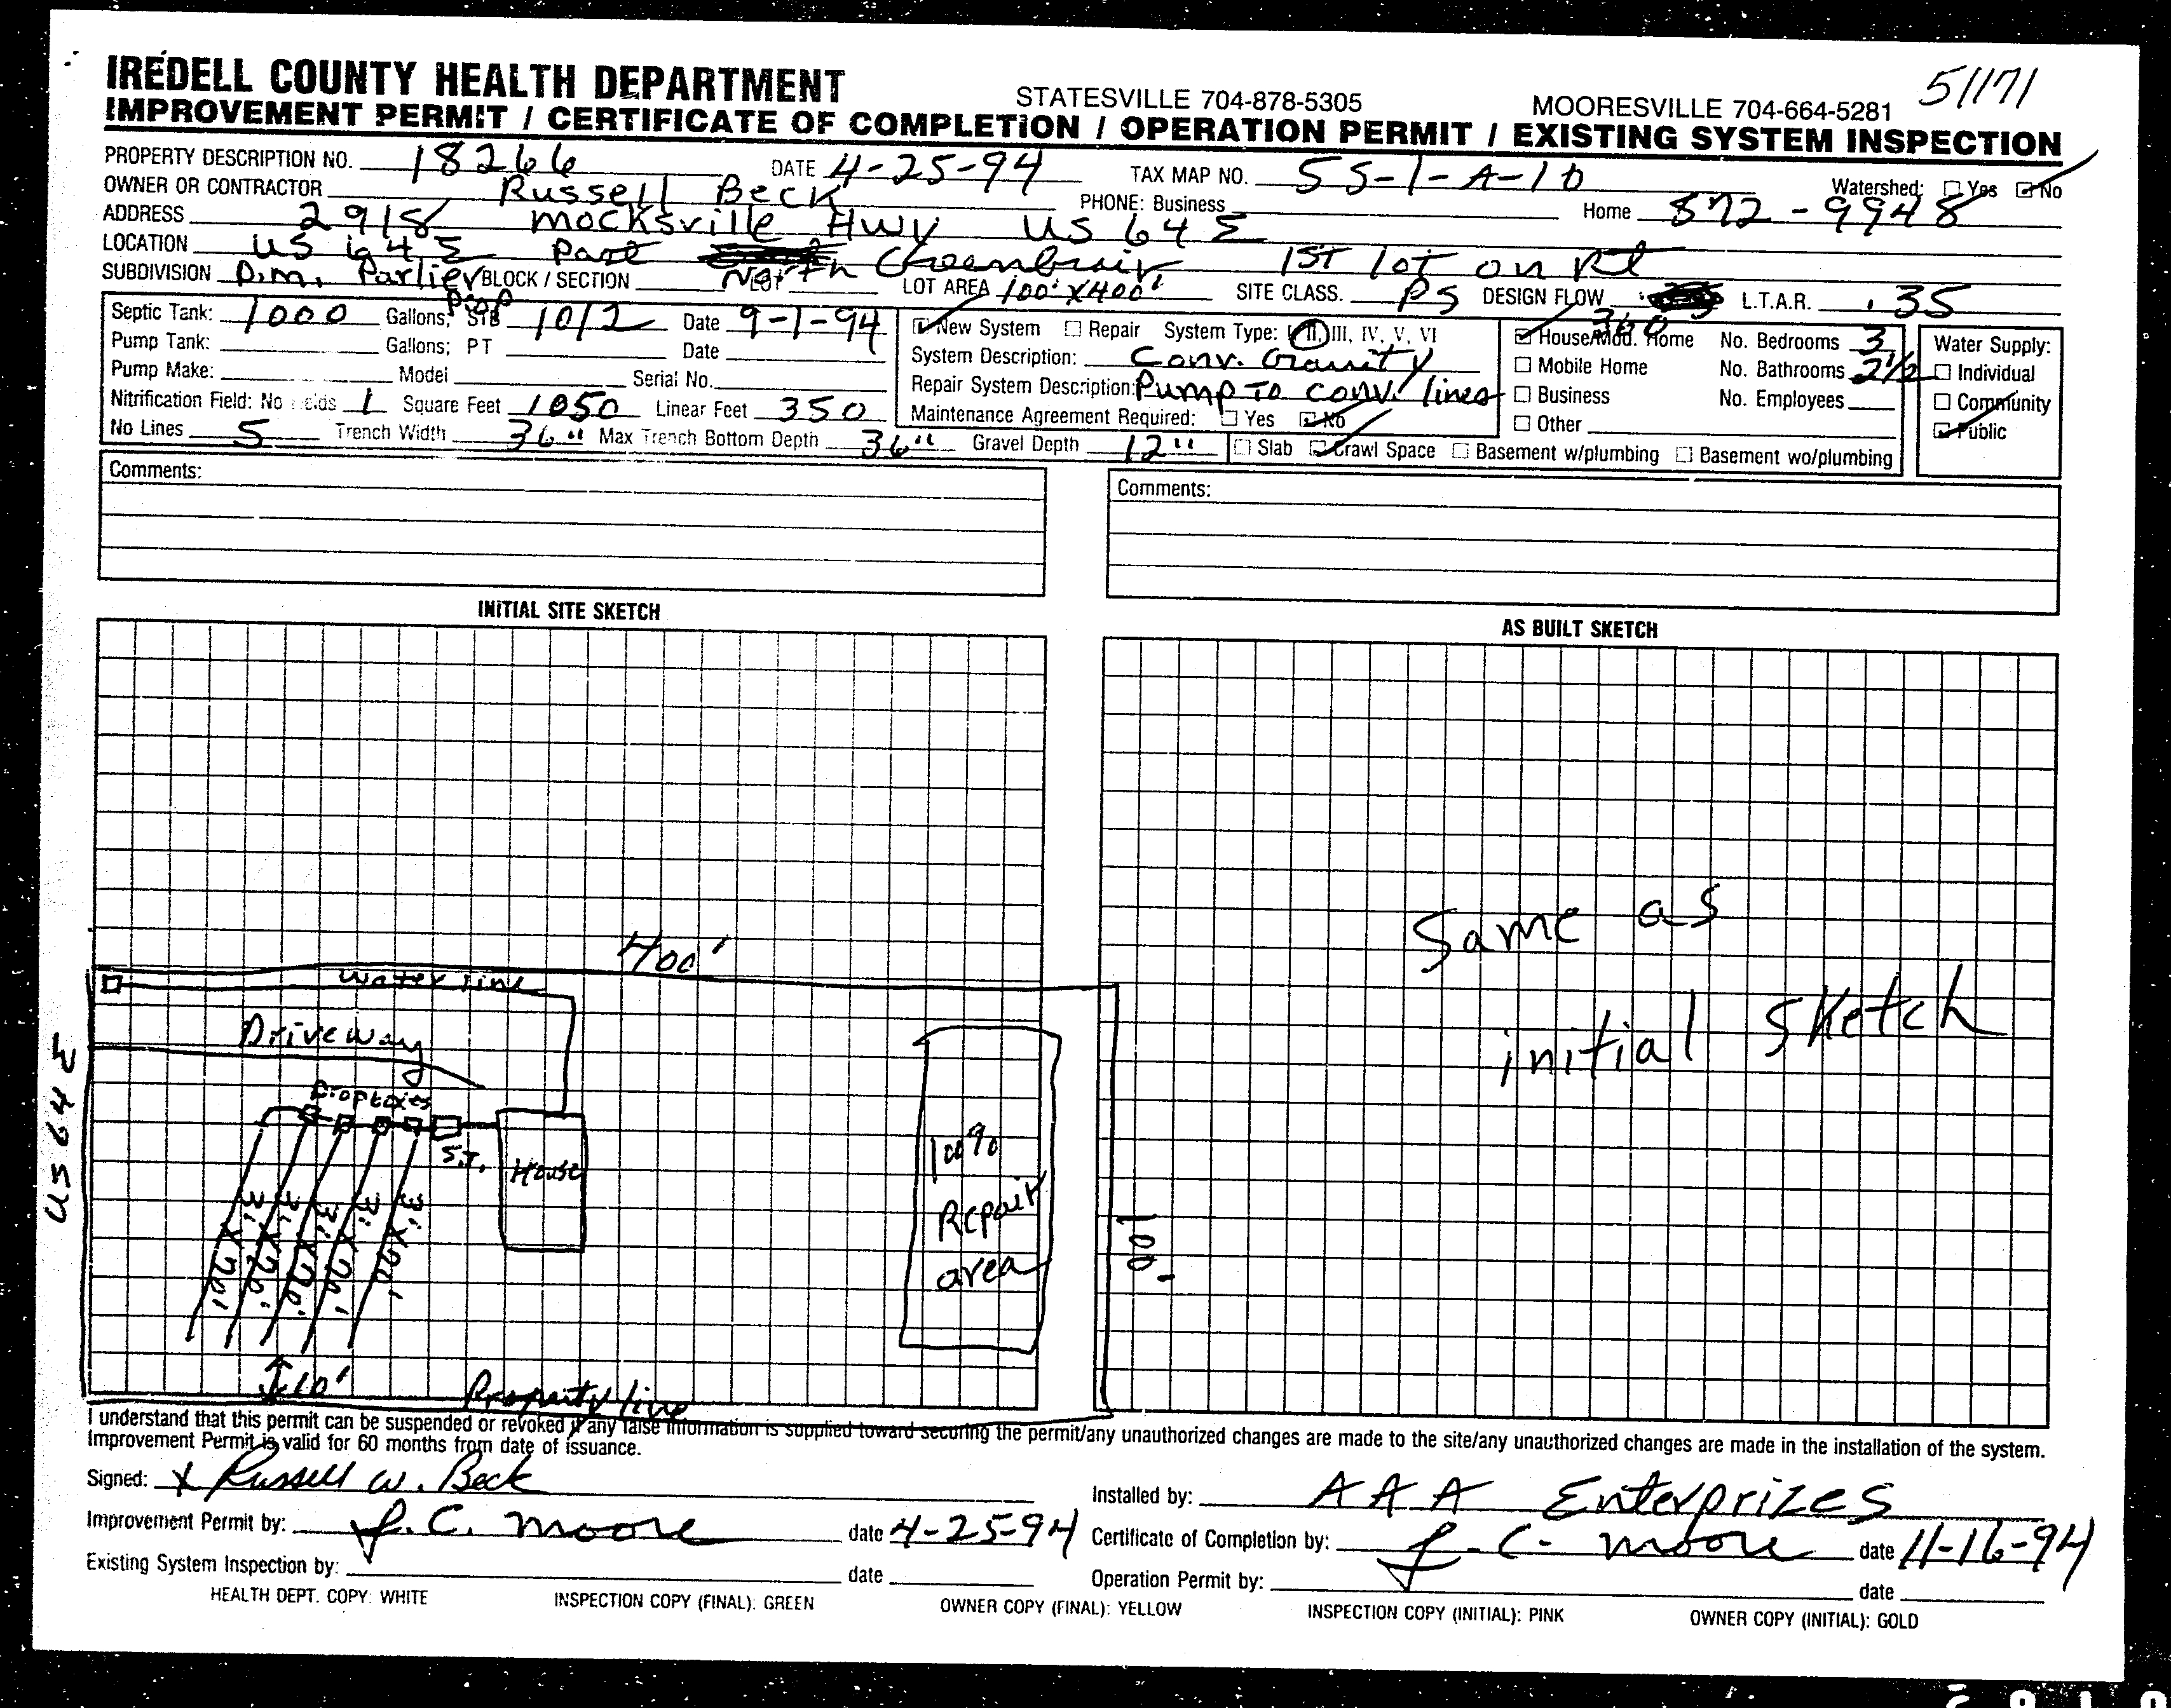 51171
IREDELL COUNTY HEALTH DEPARTMENT STATESVILLE 704-878-5305 MOORESVILLE 704-664-5281
IMPROVEMENT PERMIT / CERTIFICATE OF COMPLETION / OPERATION PERMIT / EXISTING SYSTEM INSPECTION
PROPERTY DESCRIPTION NO. 18266 DATE 4-25-94 TAX MAP NO. 5S-1-A-10 Watershed: Yes No
OWNER OR CONTRACTOR Russell Beck PHONE: Business Home 872-9948
ADDRESS 2918 Mocksville Hwy US 64 E
LOCATION US 64 E Past North Greenbriar 1ST lot on Rt
SUBDIVISION D.M. Parlier BLOCK / SECTION LOT LOT AREA 100' X 400' SITE CLASS. PS DESIGN FLOW 360 L.T.A.R. .35
Septic Tank: 1000 Gallons; STB 1012 Date 9-1-94
Pump Tank: Gallons; PT Date
Pump Make: Model Serial No.
Nitrification Field: No Fields 1 Square Feet 1050 Linear Feet 350
No Lines 5 Trench Width 36" Max Trench Bottom Depth 36" Gravel Depth 12"
New System Repair System Type: I, II, III, IV, V, VI
System Description: Conv. Gravity
Repair System Description: Pump To conv. lines
Maintenance Agreement Required: Yes No
Slab Crawl Space Basement w/plumbing Basement wo/plumbing
House/Mod. Home No. Bedrooms 3
Mobile Home No. Bathrooms 2 1/2
Business No. Employees
Other
Water Supply:
Individual
Community
Public
Comments: Comments:
INITIAL SITE SKETCH AS BUILT SKETCH
400'
Water line
Driveway
US 64 E
Dropboxes
S.T.
House
3' X 70'
3' X 70'
3' X 70'
3' X 70'
3' X 70'
100% Repair area
100'
10'
Property line
Same as
initial Sketch
I understand that this permit can be suspended or revoked if any false information is supplied toward securing the permit/any unauthorized changes are made to the site/any unauthorized changes are made in the installation of the system.
Improvement Permit is valid for 60 months from date of issuance.
Signed: X Russell W. Beck Installed by: AAA Enterprizes
Improvement Permit by: J.C. Moore date 4-25-94 Certificate of Completion by: J.C. Moore date 11-16-94
Existing System Inspection by: date Operation Permit by: date
HEALTH DEPT. COPY: WHITE INSPECTION COPY (FINAL): GREEN OWNER COPY (FINAL): YELLOW INSPECTION COPY (INITIAL): PINK OWNER COPY (INITIAL): GOLD